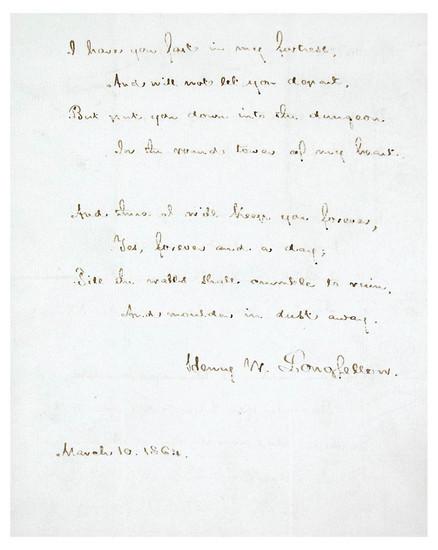 I have you fast in my fortress,
And will not let you depart,
But put you down into the dungeon
In the round tower of my heart.
And there I will keep you forever,
Yes, forever and a day;
Till the walls shall crumble to ruin,
And moulder in dust away.
Henry W. Longfellow.
March 10. 1864.